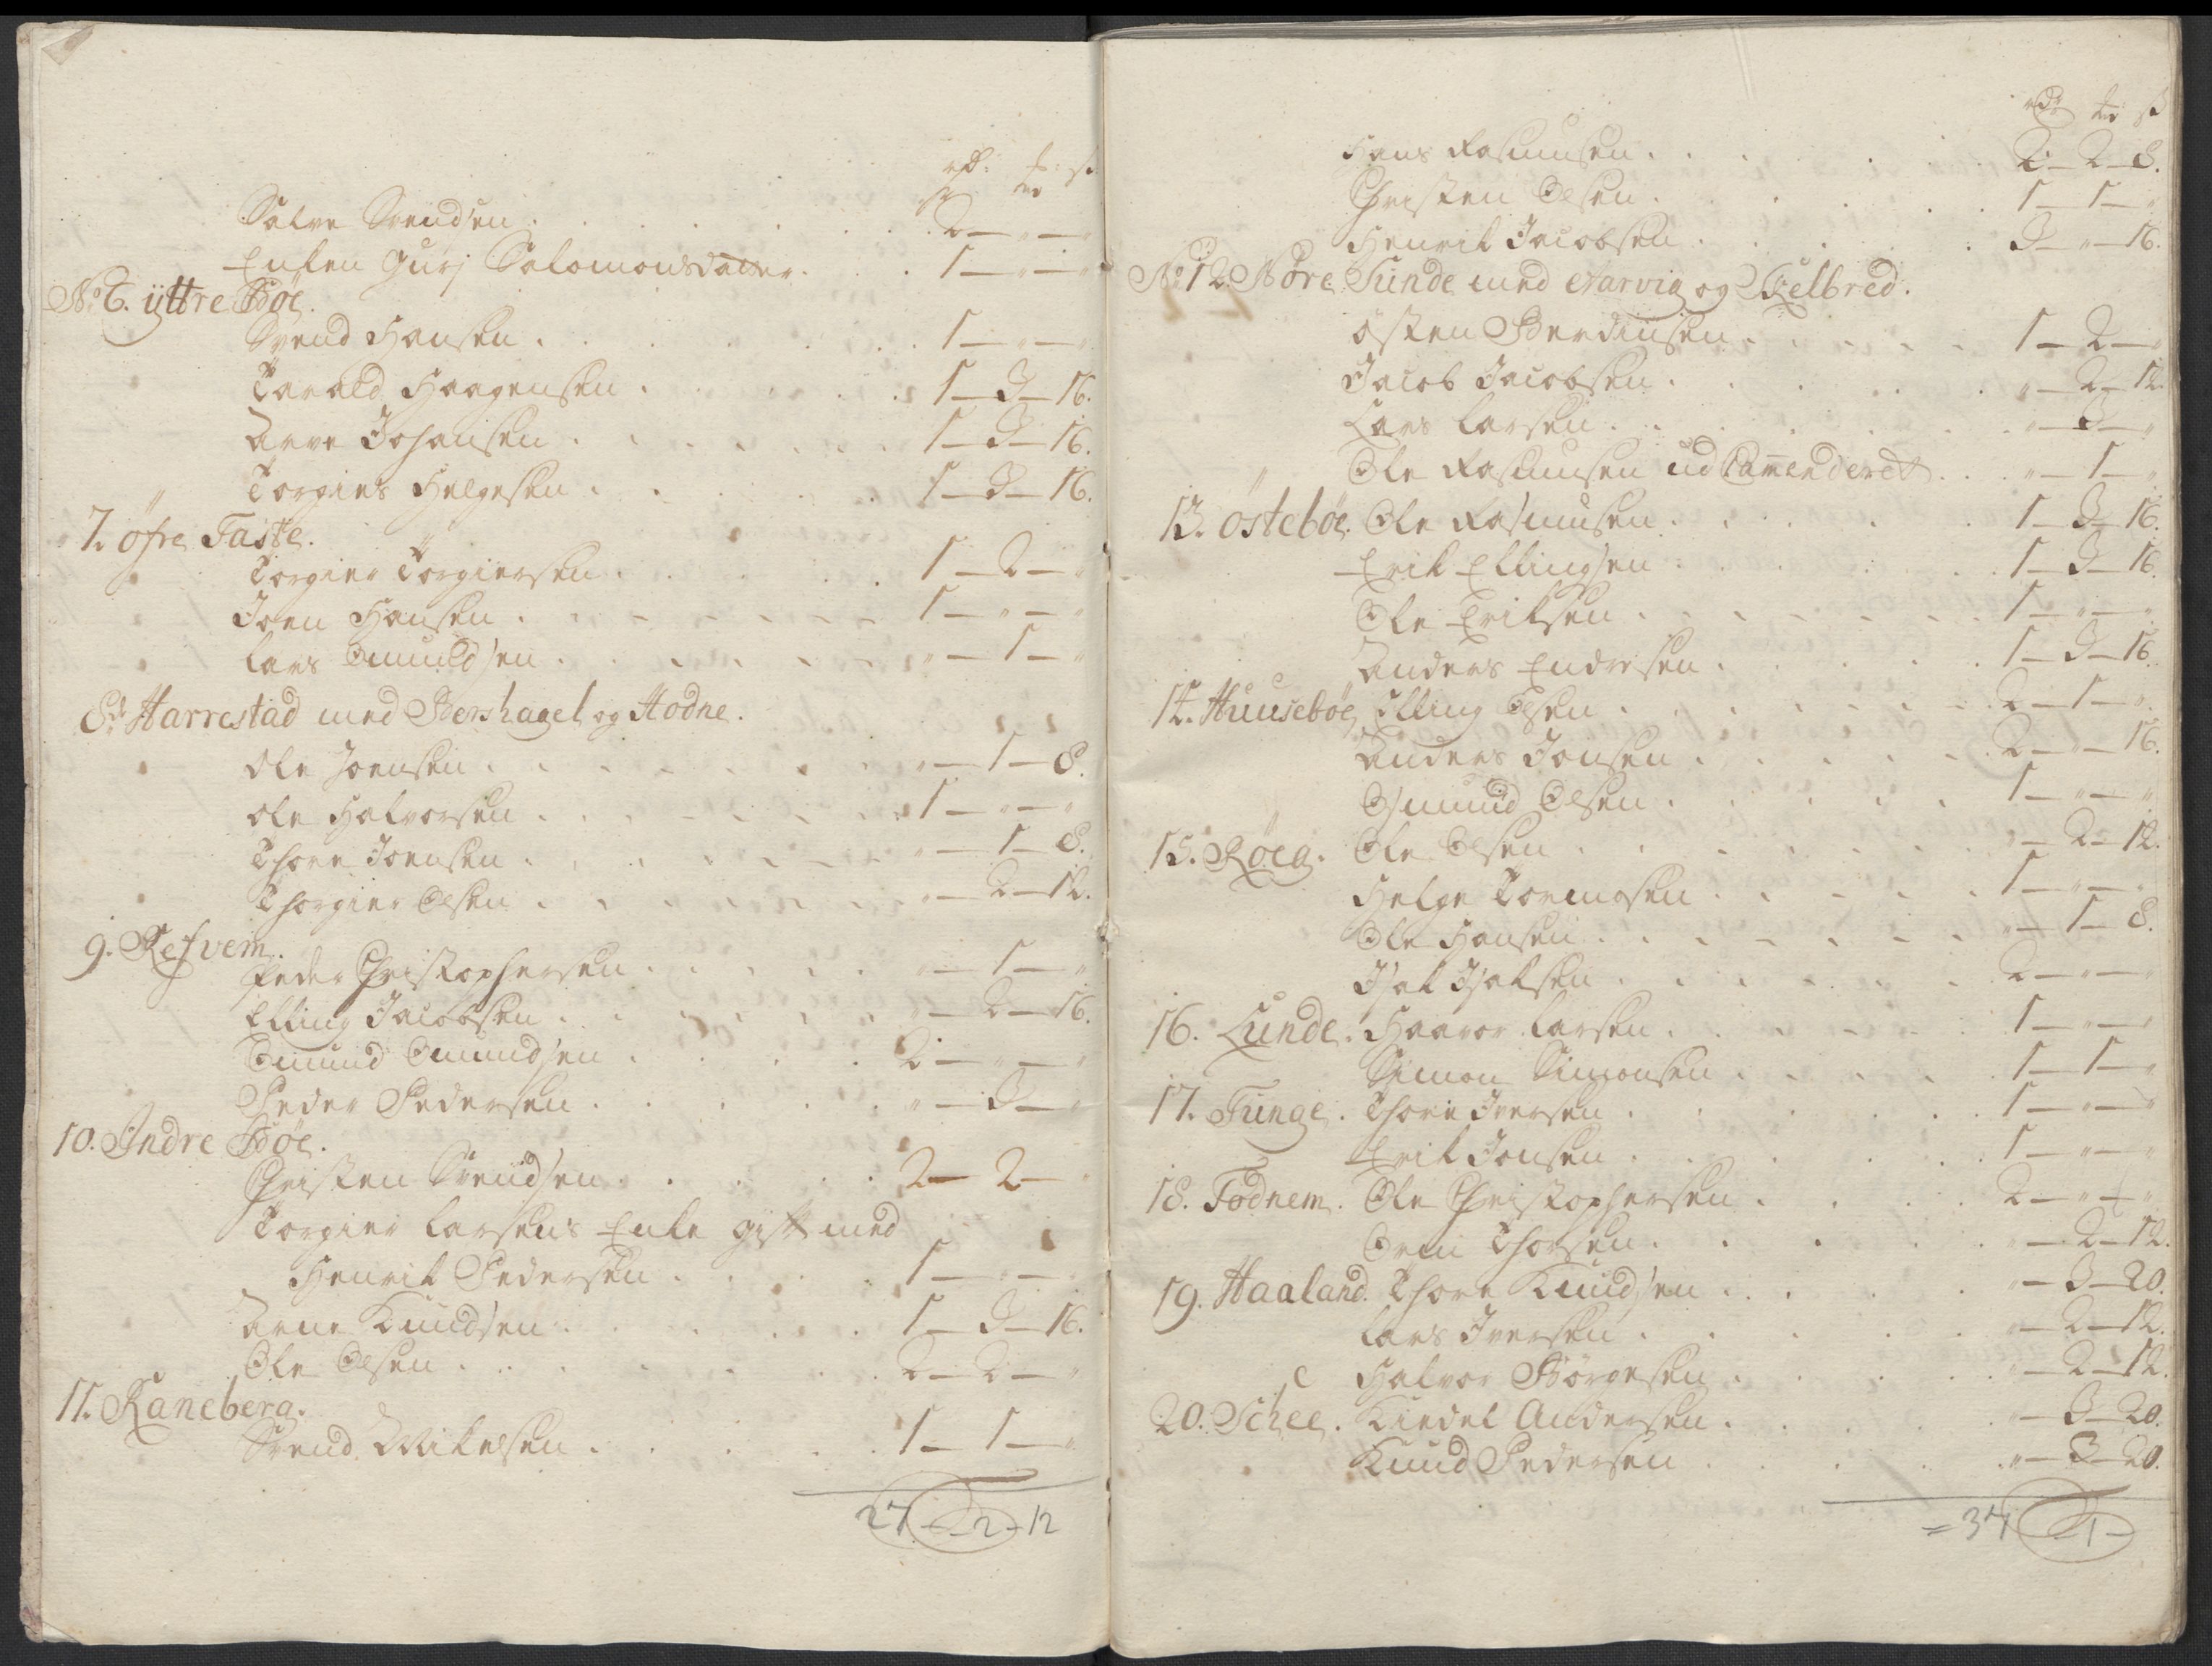 rd: t: s
Salve Svendsen . . . . . . 2 — " — "
Enken Gurj Salomonsdatter . . . 1 — " — "
No. 6. ÿttre Bøe.
Svend Hansen . . . . . . 1 — " — "
Tarald Haagensen . . . . . 1 — 3 — 16.
Arne Johansen . . . . . . 1 — 3 — 16.
Torgies Helgesen . . . . . 1 — 3 — 16.
7. öfre Taste.
Torgier Torgiersen . . . . . 1 — 2 — "
Joen Hansen . . . . . . 1 — " — "
Lars Omundsen . . . . . . " — 1 — "
8. Harrestad med Bershagel og Hodne.
Ole Joensen . . . . . . " — 1 — 8.
Ole Halvorsen . . . . . . 1 — " — "
Thore Joensen . . . . . . " — 1 — 8.
Thorgier Olsen . . . . . . " — 2 — 12.
9. Refvem.
Peder Christophersen . . . . " — 1 — "
Elling Jacobsen . . . . . " — 2 — 16.
Omund Omundsen . . . . . 2 — " — "
Peder Pedersen . . . . . . " — 3 — "
10. Indre Bøe.
Christen Svendsen . . . . . 2 — 2 —
Torgier Larsens Enke gift med
Henrik Pedersen . . . . . 1 — " —
Arne Knudsen . . . . . . 1 — 3 — 16.
Ole Olsen . . . . . . . 2 — 2 — "
11. Raneberg.
Svend Mikelsen . . . . . . 1 — 1 — "
27 — 2 — 12
rdr t s
Hans Rasmusen . . . . . . 2 — 2 — 8.
Christen Olsen . . . . . . 1 — 1 — "
Henrik Jacobsen . . . . . 3 — " — 16.
No. 12. Nøre Sunde med Narvig og Qvelbred.
östen Berdinsen . . . . . 1 — 2 — "
Jacob Jacobsen . . . . . . " — 2 — 12
Lars Larsen . . . . . . . " — 3 — "
Ole Rasmusen udCam̄enderet . . " — 1 — "
13. östebøe. Ole Rasmusen . . . . . 1 — 3 — 16.
Erik Ellingsen . . . . . . 1 — 3 — 16.
Ole Eriksen . . . . . . 1 — " — "
Anders Endresen . . . . . 1 — 3 — 16.
14. Huusebøe Elling Olsen . . . . . 2 — 1 — "
Anders Jonsen . . . . . . 2 — " — 16.
Osmund Olsen . . . . . . 1 — " — "
15. Røeg. Ole Olsen . . . . . . " — 2 — 12.
Helge Tormosen . . . . . 1 — " — "
Ole Hansen . . . . . . . " — 1 — 8.
Isak Isaksen . . . . . . 2 — " — "
16. Lunde. Haavor Larsen . . . . . 1 — " — "
Simon Simonsen . . . . . 1 — 1 — "
17. Tunge. Thore Iversen . . . . . 1 — " — "
Erik Jonsen . . . . . . 1 — " — "
18. Todnem. Ole Christophersen . . . . 2 — " — "
Orm Thorsen . . . . . . " — 2 — 12.
19. Haaland. Thore Knudsen . . . . . " — 3 — 20.
Lars Iversen . . . . . . " — 2 — 12.
Halvor Börgesen . . . . . " — 2 — 12.
20. Schee. Kiedel Andersen . . . . . " — 3 — 20.
Knud Pedersen . . . . . . " — 3 — 20.
= 37 — 1 —